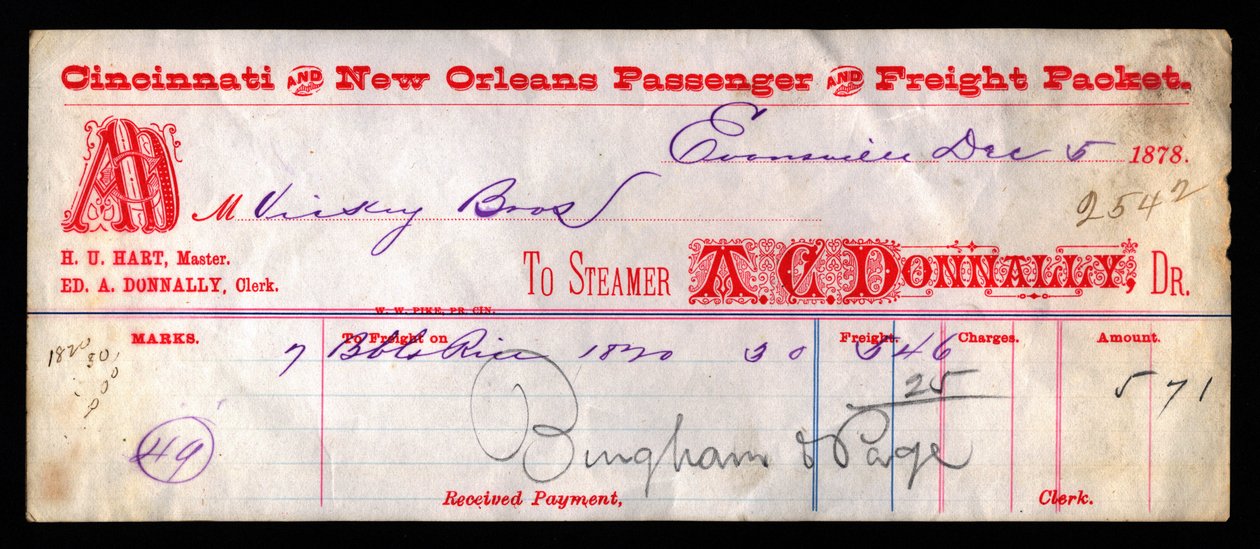 Cincinnati AND New Orleans Passenger AND Freight Packet.
Evansville Dec 5 1878.
M Viskey Bros
2542
H. U. HART, Master.
ED. A. DONNALLY, Clerk.
TO STEAMER A. C. DONNALLY, DR.
W. W. PIKE, PR. CIN.
MARKS. To Freight on Freight. Charges. Amount.
7 Bbls Rice 1820 30 5 46
1820
30
25
5 71
49
Bingham & Page
Received Payment, Clerk.